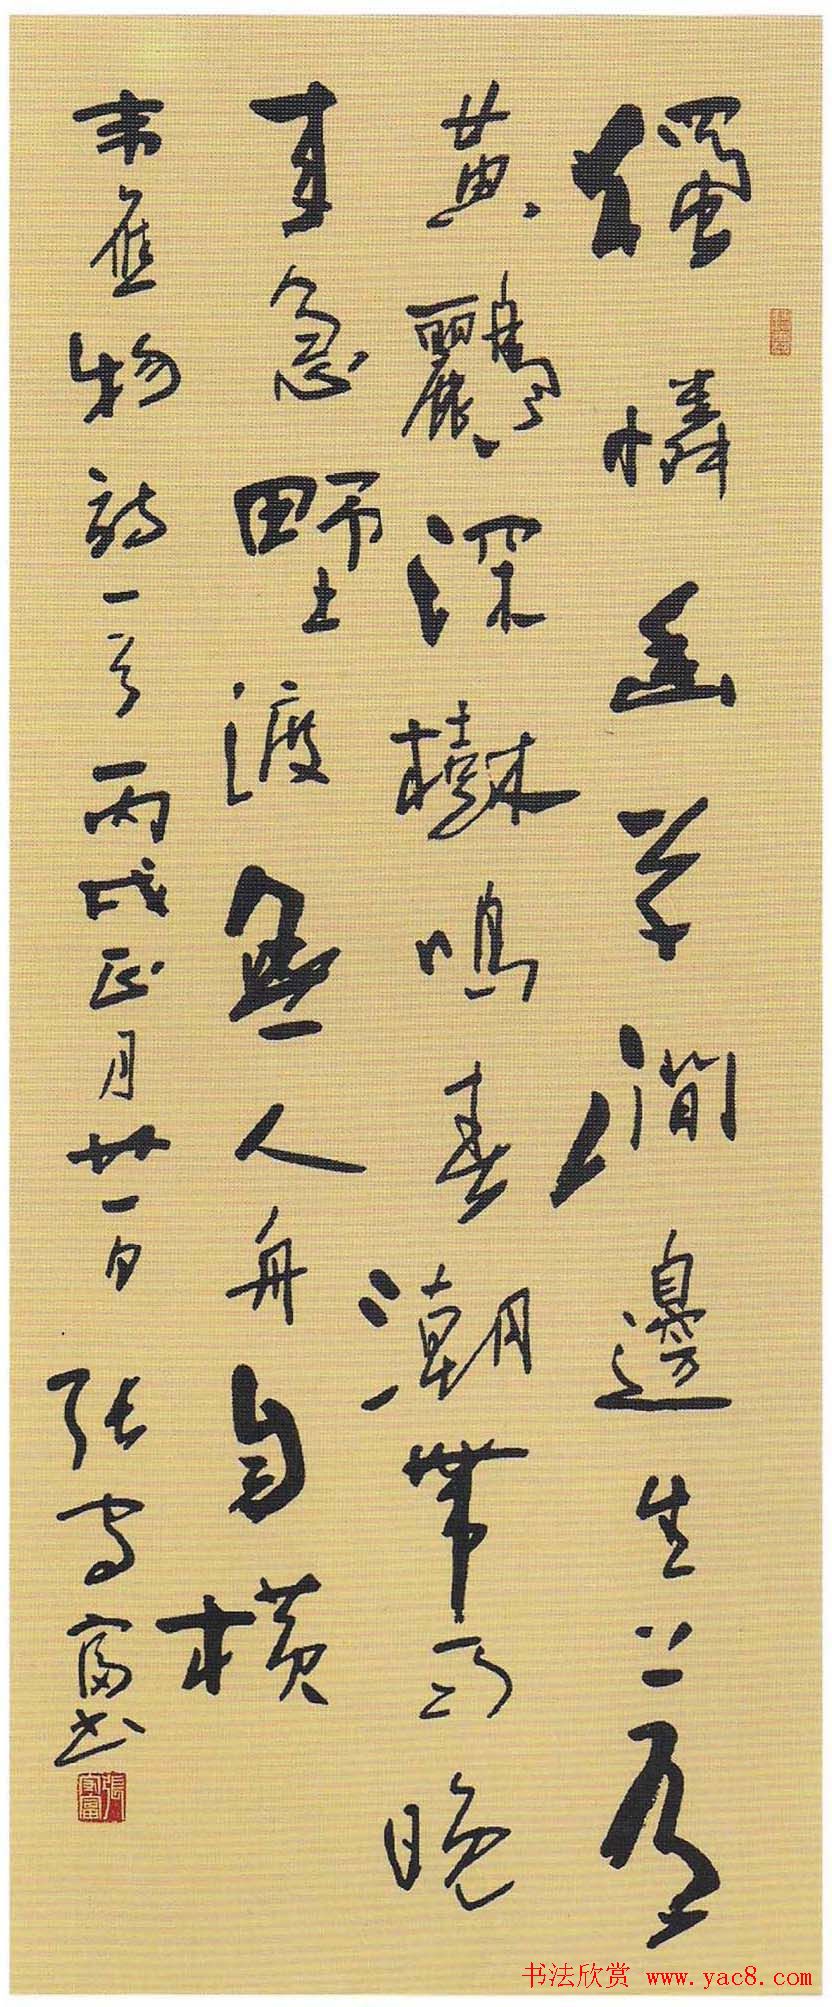 獨憐幽草澗邊生上有
黃鸝深樹鳴春潮帶雨晚
來急野渡無人舟自橫
韋應物詩一首丙戌正月廿一日 張守富書
張守富
书法欣赏 www.yac8.com